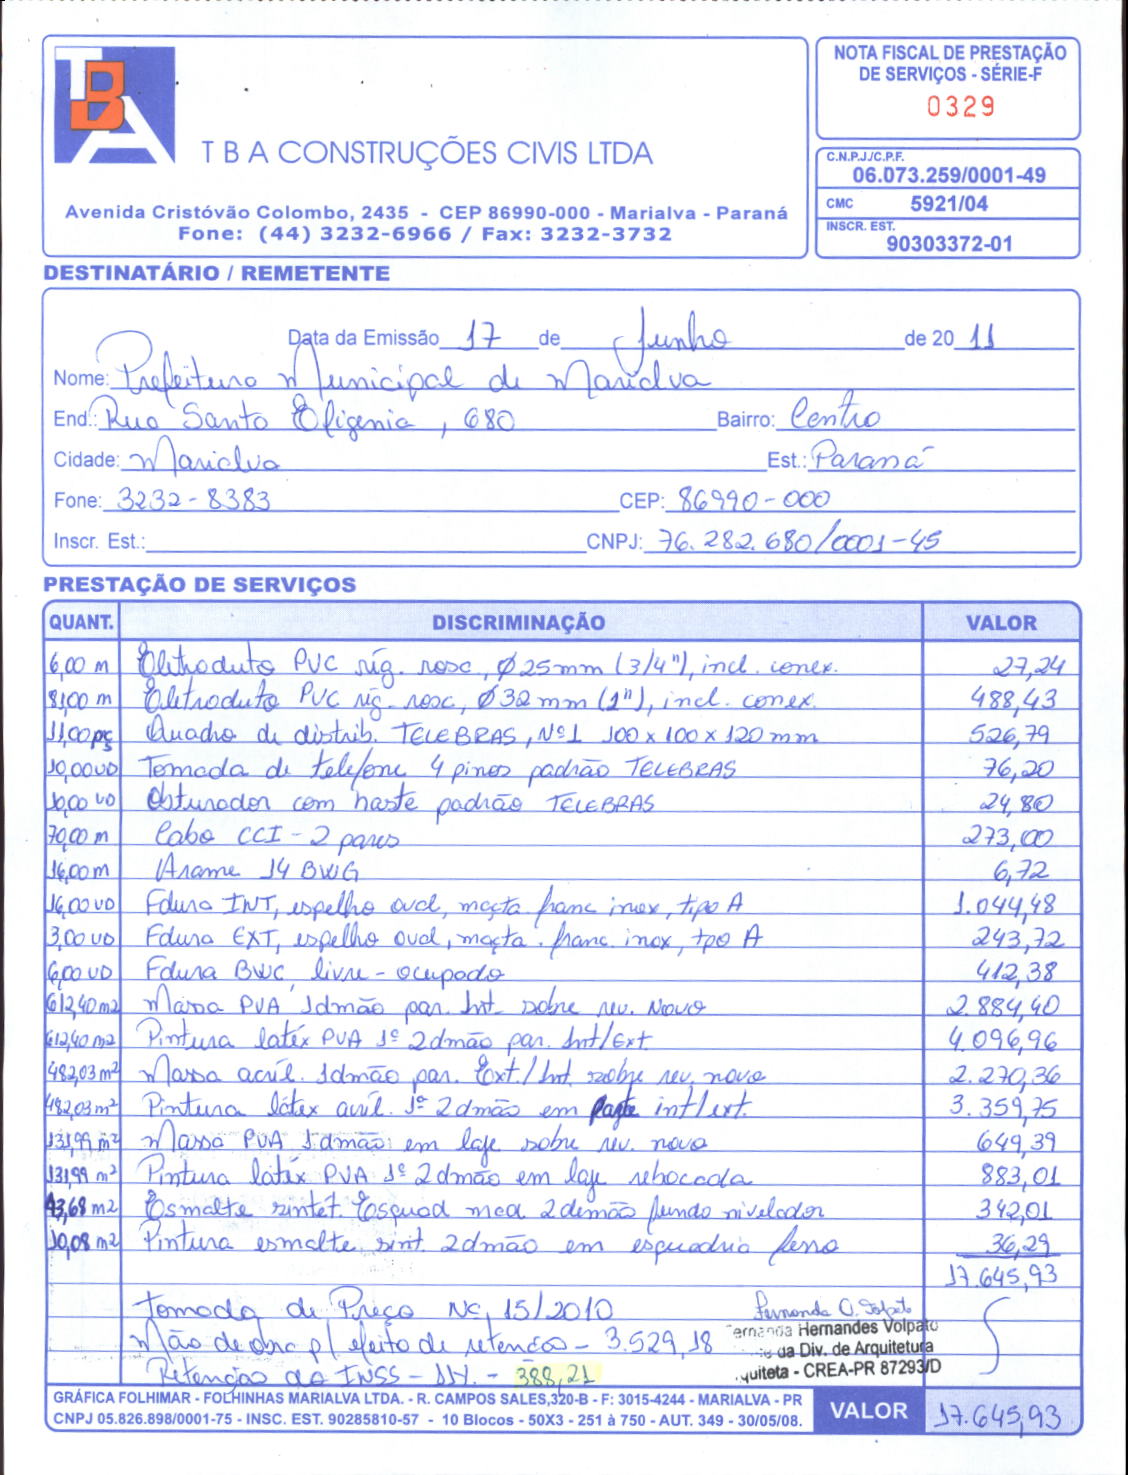 TBA
T B A CONSTRUÇÕES CIVIS LTDA
Avenida Cristóvão Colombo, 2435 - CEP 86990-000 - Marialva - Paraná
Fone: (44) 3232-6966 / Fax: 3232-3732
NOTA FISCAL DE PRESTAÇÃO
DE SERVIÇOS - SÉRIE-F
0329
C.N.P.J./C.P.F.
06.073.259/0001-49
CMC 5921/04
INSCR. EST.
90303372-01
DESTINATÁRIO / REMETENTE
Data da Emissão 17 de Junho de 20 11
Nome: Prefeitura Municipal de Marialva
End.: Rua Santa Efigenia, 680 Bairro: Centro
Cidade: Marialva Est.: Paraná
Fone: 3232-8383 CEP: 86990-000
Inscr. Est.: CNPJ: 76.282.680/0001-45
PRESTAÇÃO DE SERVIÇOS
QUANT. DISCRIMINAÇÃO VALOR
6,00 m Eletroduto PVC ríg. rosc, Ø 25mm (3/4"), incl. conex. 27,24
81,00 m Eletroduto PVC ríg. rosc, Ø 32mm (1"), incl. conex. 488,43
11,00 pç Quadro de distrib. TELEBRAS, Nº1 100x100x120mm 526,79
10,00 UD Tomada de telefone 4 pinos padrão TELEBRAS 76,20
10,00 UD Obturador com haste padrão TELEBRAS 24,80
70,00 m Cabo CCI - 2 pares 273,00
16,00 m Arame 14 BWG 6,72
16,00 UD Fdura INT, espelho oval, maçta franc inox, tipo A 1.044,48
3,00 UD Fdura EXT, espelho oval, maçta. franc. inox, tpo A 243,72
6,00 UD Fdura BWC, livre - ocupado 412,38
612,40 m2 Massa PVA 1dmão par. Int. sobre rev. Novo 2.884,40
612,40 m2 Pintura latéx PVA 1º 2dmão par. Int/Ext. 4.096,96
482,03 m² Massa acríl. 1dmão par. Ext./Int. sobre rev. novo 2.270,36
482,03 m² Pintura látex acríl. 1º 2dmão em int/ext. 3.359,75
131,99 m² Massa PVA 1dmão em laje sobre rev. novo 649,39
131,99 m² Pintura latéx PVA 1º 2dmão em laje rebocada 883,01
43,68 m2 Esmalte sintet. Esquad mad 2demão fundo nivelador 342,01
10,08 m2 Pintura esmalte sint. 2dmão em esquadria ferro 36,29
17.645,93
Tomada de Preço Nº 15/2010
Mão de obra p/ efeito de retenção - 3.529,18
Retenção do INSS - 11%. - 388,21
Hernandes Volpato
da Div. de Arquitetura
quiteta - CREA-PR 87293/D
GRÁFICA FOLHIMAR - FOLHINHAS MARIALVA LTDA. - R. CAMPOS SALES,320-B - F: 3015-4244 - MARIALVA - PR
CNPJ 05.826.898/0001-75 - INSC. EST. 90285810-57 - 10 Blocos - 50X3 - 251 à 750 - AUT. 349 - 30/05/08.
VALOR 17.645,93